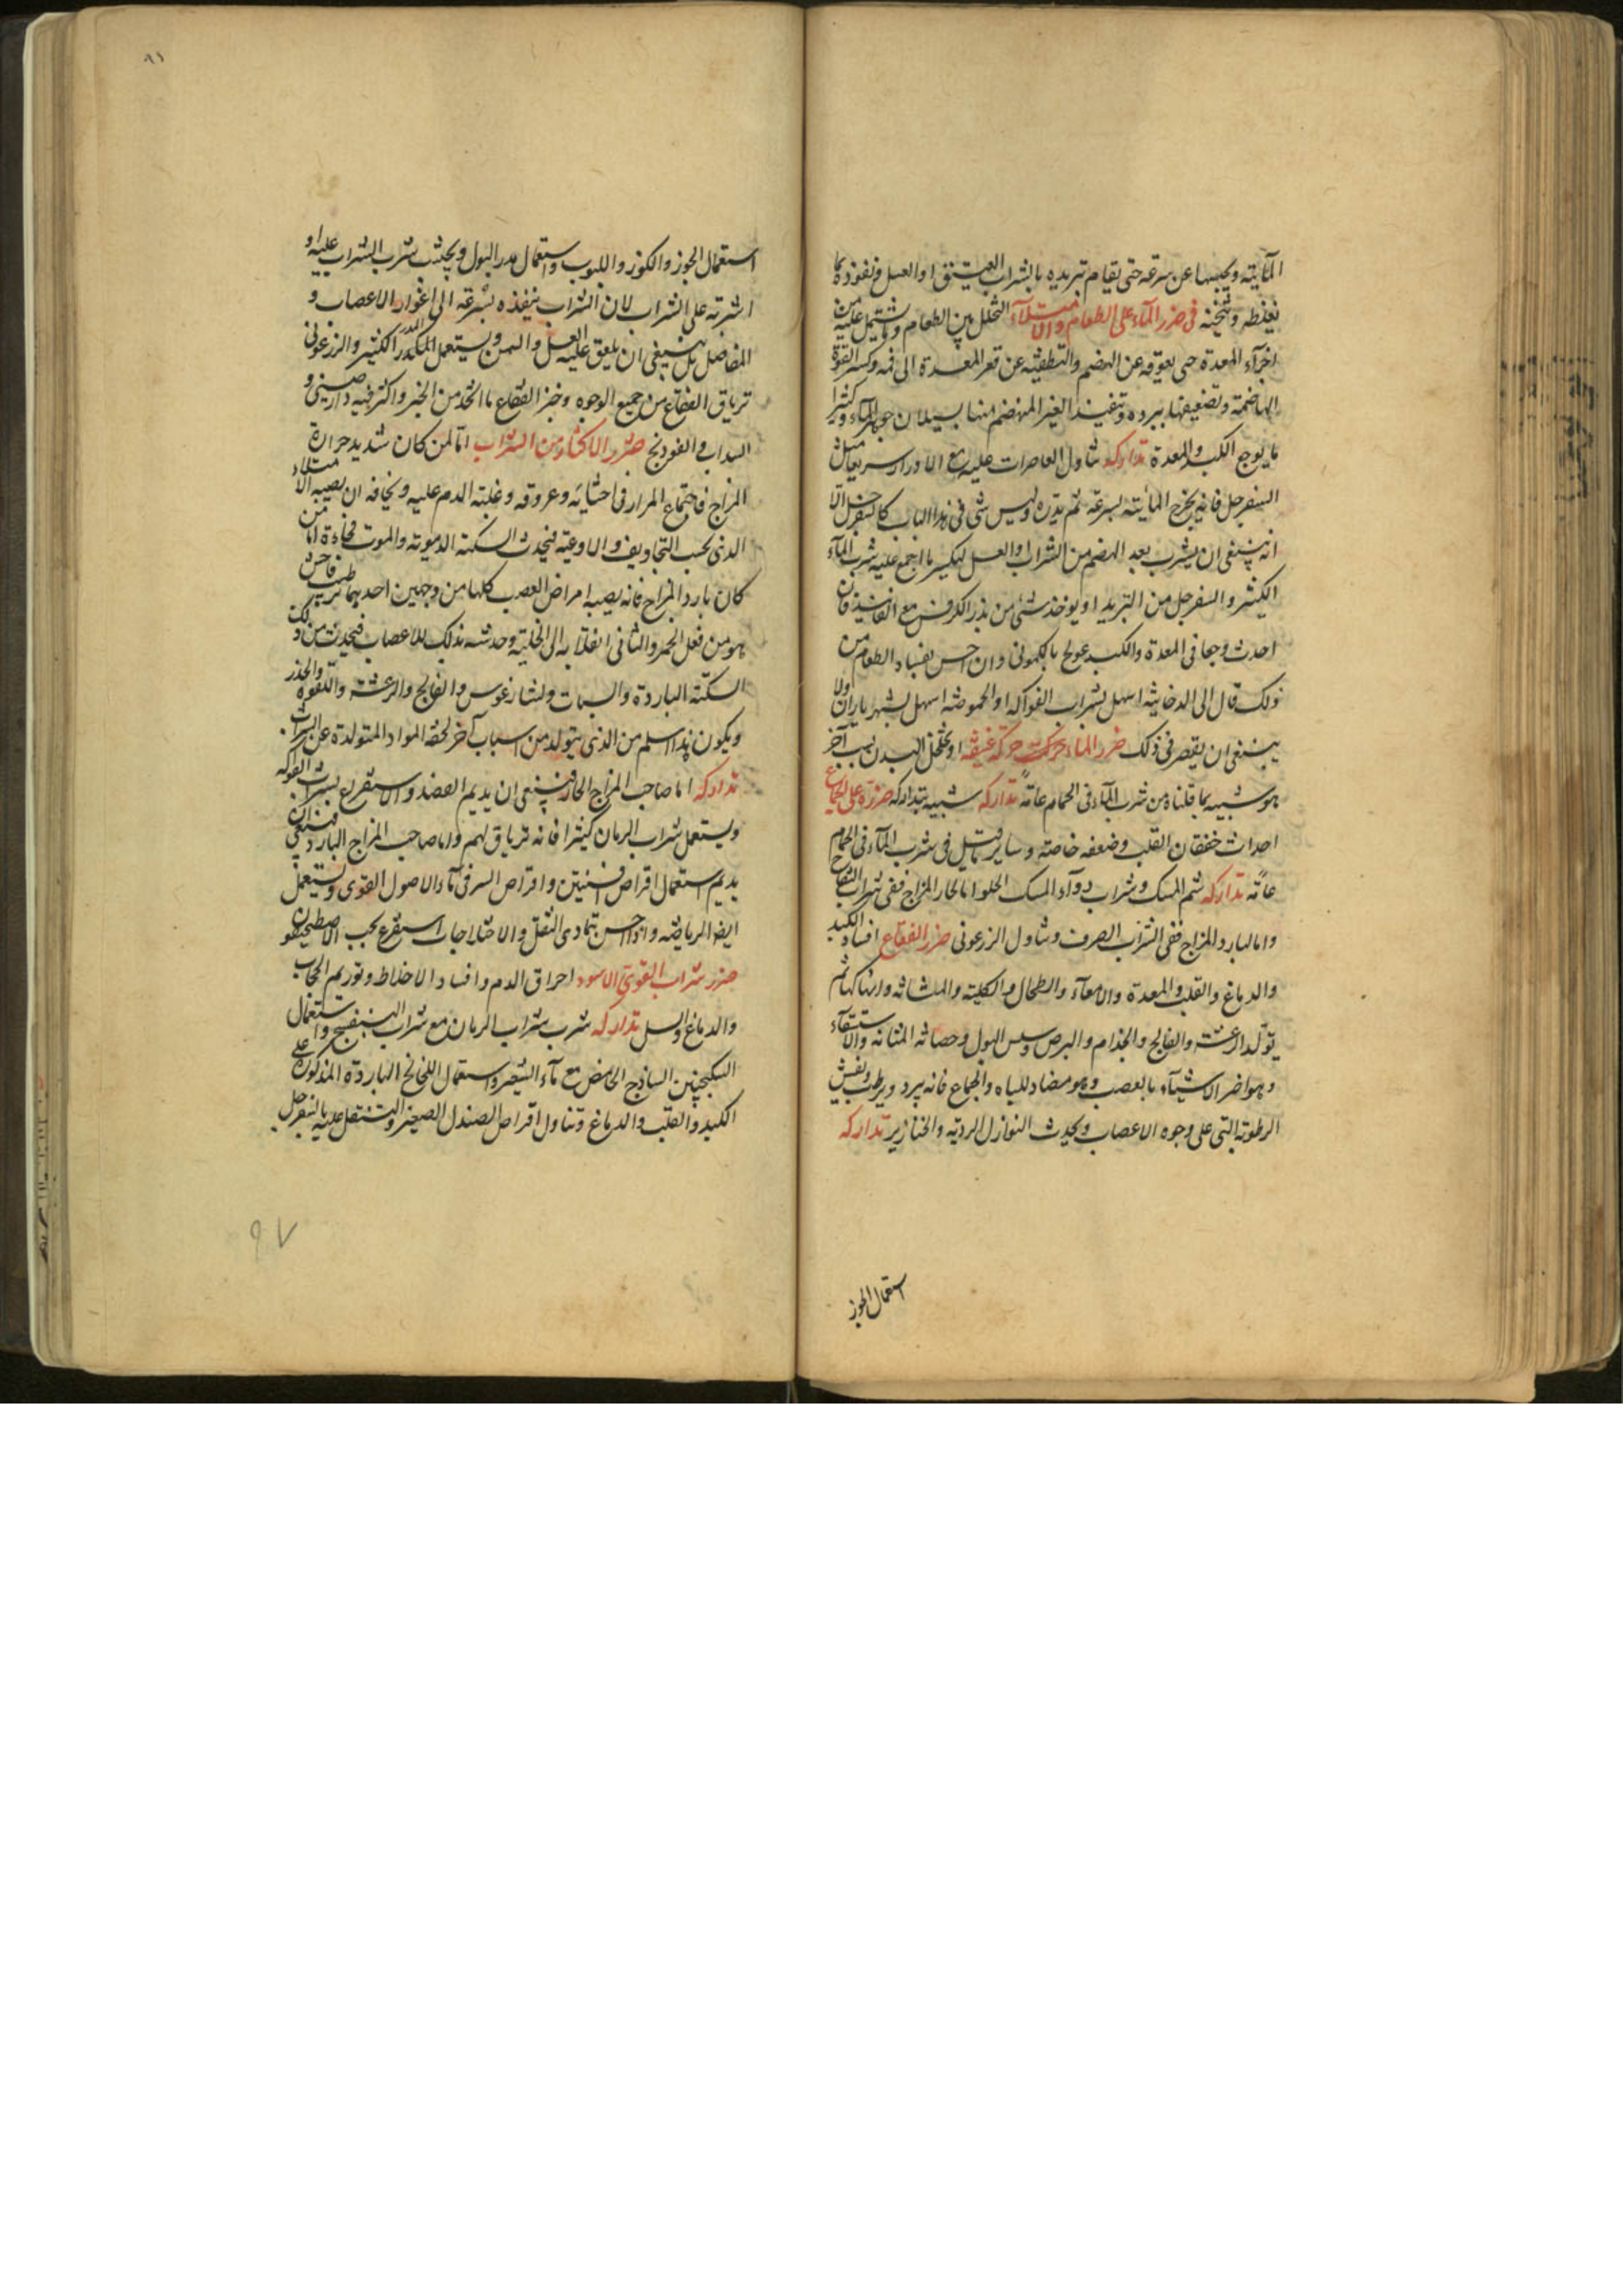 المآئية ويحبسها عن سرعه حتى يقاوم تبريده بالشراب العتيق او العسل فى نفوذه بما
يغلظه ويثخنه فى ضرر المآء على الطعام والامتلآء التخلل بين الطعام وما يشتمل عليه من
اجزآء المعدة حتى يعوقه عن الهضم والتطفيه عن قعر المعدة الى فمه وكسر القوة
الهاضمة وتضعيفها ببرده وتنفيذ الغير المنهضم منها بسيلان جوهر المآء وكثيرا
ما يوجع الكبد والمعدة تداركه تناول العاصرات عليه مع الادرار سريعا مثل
السفرجل فانه يخرج المائية بسرعة ثم يدره وليس شى فى هذا الباب كالسفرجل الا
انه ينبغى ان يشرب بعد الهضم من الشراب او العسل ليكسر ما اجمع عليه شرب المآء
الكثير والسفرجل من التبريد او يوخذ شئ من بذر الكرفس مع الفانيد فان
احدث وجعا فى المعدة والكبد عولج بالكمونى وان احس بفساد الطعام من
ذلك قال الى الدخانية اسهل بشراب الفواكه او الحموضة اسهل بشهرياران ولا
ينبغى ان يقصر فى ذلك ضرر الماء بحركت حركة عنيفة او تخلخل البدن بسبب آخر
هو شبيه بما قلناه من شرب المآء فى الحمام عامة تداركه شبيه بتداركه ضرره على الجماع
احداث خفقان القلب وضعفه خاصة وساير ما قيل فى شرب المآء فى الحمام
عامة تداركه شم المسك وشراب دوآء المسك الحلو اما الحار المزاج ففى شراب التفاح
واما البارد المزاج ففى الشراب الصرف وتناول الزرعونى ضرر الفقاع افساد الكبد
والدماغ والقلب والمعدة والامعآء والطحال والكلية والمثانه وانهاكها ثم
يتولد الرعشة والفالج والجذام والبرص وسلس البول وحصاة المثانه والاستسقآء
وهو اضر الاشيآء بالعصب وهو مضاد للباه والجماع فانه يبرد ويرطب ويفيش
الرطوبة التى على وجوه الاعصاب ويحدث النوازل الردية والخنازير تداركه
استعمال الجوز
استعمال الجوز والكوز واللبوب واستعمال مدر البول ويجتنب شرب الشراب عليه او
اشربته على الشراب لان الشراب ينفذه بسرعة الى اغوار الاعصاب و
المفاصل بل ينبغى ان يلعق عليه العسل والسمن ويستعمل الكندر الكثير والزرعونى
ترياق الفقاع من جميع الوجوه وخبز الفقاع ما اتخذ من الخبز واكثر فيه دارصينى و
السداب والفودنج ضرر الاكثار من الشراب اما لمن كان شديد حرارة
المزاج فاجتماع المرار فى احشائه وعروقه وغلبة الدم عليه ويخافه ان يصيبه الامتلاء
الذى بحسب التجاويف والاوعية فيحدث السكتة الدموية والموت فجاءة اما من
كان بارد المزاج فانه يصيبه امراض العصب كلها من وجهين احدهما ترطيب فاحش
هو من فعل الخمر والثانى انقلابه الى الخلية وحدثه بذلك للاعصاب فيحدث من ذلك
السكتة الباردة والسبات ولشارغوس والفالج والرعشة واللقوة والخدر
ويكون هذا اسلم من الذى يتولد من اسباب آخر لحقه المواد المتولدة عن الشراب
تداركه اما صاحب المزاج الحار فينبغى ان يديم الفصد والاستفرغ بشراب الفوكه
ويستعمل شراب الرمان كثيرا فانه ترياق لهم واما صاحب المزاج البارد فينبغى ان
يديم استعمال اقراص افسنتين واقراص السر فى مآء الاصول القوى ويستعمل
ايضا الرياضة واذا احس بتمادى الثقل والاختلاجات استفرغ بحب الاصطمخيقون
ضرر شراب القوى الاسود احراق الدم وافساد الاخلاط وتوريم الحجاب
والدماغ والسل تداركه شرب شراب الرمان مع شراب البنفسج واستعمال
السكنجبين الساذج الحامض مع مآء الشعير واستعمال اللخالخ الباردة المذكورة على
الكبد والقلب والدماغ وتناول اقراص الصندل الصغير والتنقل عليه بالسفرجل
٩٧